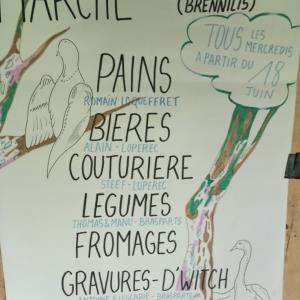 MARCHÉ
(BRENNILIS)
TOUS LES
MERCREDIS
A PARTIR DU 18
JUIN
PAINS
ROMAIN LOQUEFFRET
BIERES
ALAIN - LOPEREC
COUTURIERE
STEEF - LOPEREC
LEGUMES
THOMAS & MANU - BRASPARTS
FROMAGES
GRAVURES - D'WITCH
ANTOINE & LEOCADIE - BRASPARTS